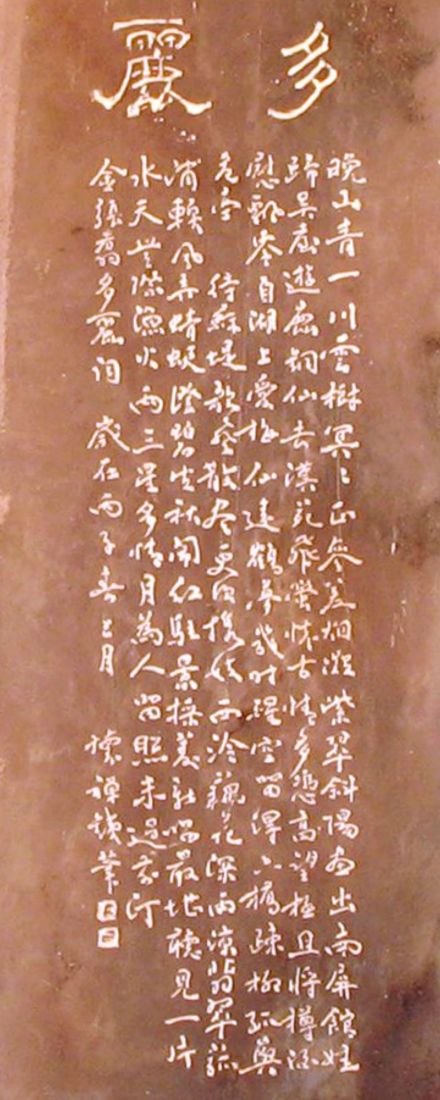 多麗
晚山青一川雲樹冥〻正參差烟凝紫翠斜陽畫出南屏館娃
歸吳臺遊鹿銅仙去漢苑飛螢懷古情多憑高望極且將樽酒
慰飄零自湖上愛梅仙遠鶴夢幾時醒空留得六橋疎柳孤嶼
危亭 待蘇堤歌聲散盡更須攜妓西泠藕花深雨涼翡翠菰
蒲軟風弄蜻蜓澄碧生秋鬧紅駐景採菱新唱最堪聽見一片
水天無際漁火兩三星多情月為人留照未過前汀
金張翥多麗詞 歲在丙子春 月 懷禪鐵筆